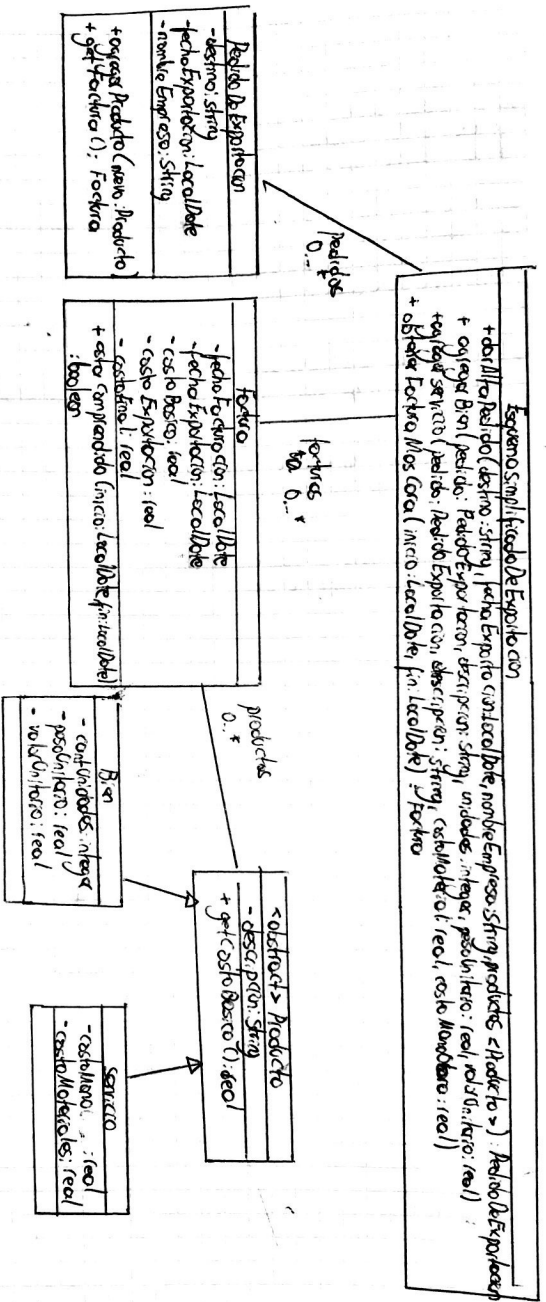 Esquema Simplificado De Exportacion
+ darAltaPedido (destino: string, fechaExportacion: LocalDate, nombreEmpresa: string, productos <Producto>): PedidoDeExportacion
+ agregar Bien (pedido: PedidoExportacion, descripcion: string, unidades: integer, pesoUnitario: real, valorUnitario: real) :
+ agregar servicio (pedido: PedidoExportacion, descripcion: string, costoMaterial: real, costoManoObra: real)
+ obtener Factura Mas Cara (inicio: LocalDate, fin: LocalDate) : Factura
pedidos
0..*
facturas
0..*
Pedido De Exportacion
- destino: string
- fechaExportacion: LocalDate
- nombre Empresa: String
+ agregar Producto (nuevo: Producto)
+ getFactura(): Factura
Factura
- fechaFacturacion: LocalDate
- fechaExportacion: LocalDate
- costo Basico: real
- costo Exportacion: real
- costoFinal: real
+ esta Comprendido (inicio: LocalDate, fin: LocalDate)
: boolean
productos
0..*
<abstract> Producto
- descripcion: String
+ getCostoBasico(): real
Bien
- cantUnidades: integer
- pesoUnitario: real
- valorUnitario: real
Servicio
- costoMano : real
- costoMateriales: real